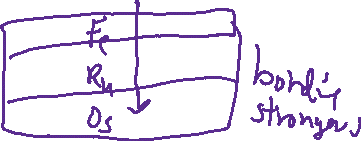 Fe
Ru
Os
bonding
stronger